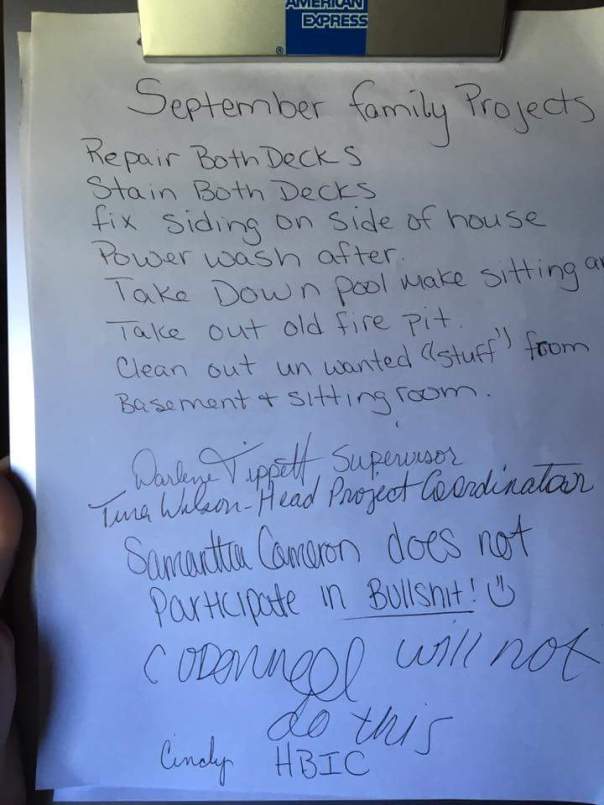 AMERICAN
EXPRESS
September family Projects
Repair Both Decks
Stain Both Decks
fix siding on side of house
Power wash after.
Take Down pool make sitting ar
Take out old fire pit.
Clean out un wanted "stuff" from
Basement + sitting room.
Darlene Tippett Supervisor
Tina Wilson - Head Project Coordinator
Samantha Cameron does not
Participate in Bullshit! ☺
will not
do this
Cindy HBIC